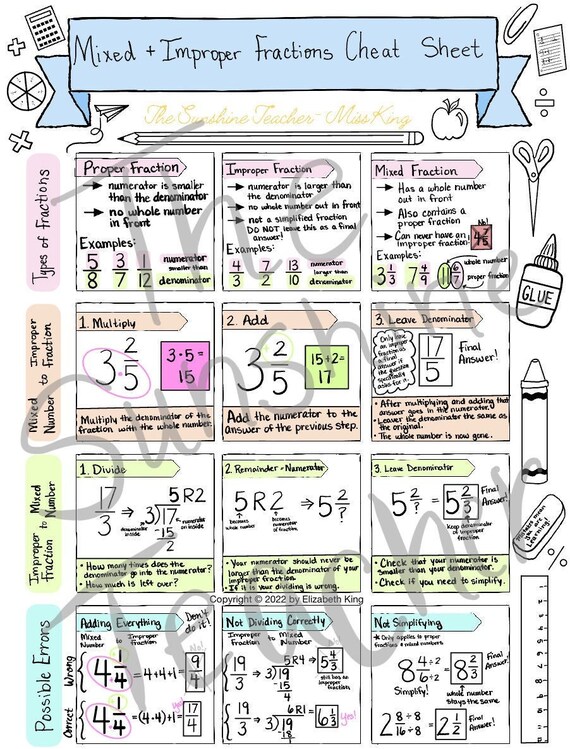 Mixed + Improper Fractions Cheat Sheet
The Sunshine Teacher- Miss King
The Sunshine Teacher
Types of Fractions
Proper Fraction
→ numerator is smaller
than the denominator
→ no whole number
in front
Examples:
5/8 3/7 1/12 numerator
smaller than
denominator
Improper Fraction
→ numerator is larger than
the denominator
→ no whole number out in front
→ not a simplified fraction
DO NOT leave this as a final
answer!
Examples:
4/3 7/2 13/10 numerator
larger than
denominator
Mixed Fraction
→ Has a whole number
out in front
→ Also contains a
proper fraction
→ Can never have an
improper fraction
No!
Examples:
3 1/3 7 4/9 11 6/7
whole number
proper fraction
GLUE
Mixed Number to Improper Fraction
1. Multiply
3 2/5
3·5=
15
Multiply the denominator of the
fraction with the whole number.
2. Add
3 2/5
15+2=
17
Add the numerator to the
answer of the previous step.
3. Leave Denominator
Only have
an improper
fraction as
a final
answer if
the question
specifically
asks for it.
17/5
Final
Answer!
• After multiplying and adding that
answer goes in the numerator.
• Leave the denominator the same as
the original.
• The whole number is now gone.
Improper Fraction to Mixed Number
1. Divide
17/3 → 3)17
5 R2
-15
2
denominator
inside
numerator
on inside
• How many times does the
denominator go into the numerator?
• How much is left over?
2. Remainder = Numerator
5 R 2 ⇒ 5 2/?
becomes
whole number
becomes
numerator
of fraction
• Your numerator should never be
larger than the denominator of your
improper fraction.
• If it is your dividing is wrong.
3. Leave Denominator
5 2/? = 5 2/3
Final
Answer!
keep denominator
of improper
fraction
• Check that your numerator is
smaller than your denominator.
• Check if you need to simplify.
Mistakes mean
you are
learning!
Copyright © 2022 by Elizabeth King
Possible Errors
Adding Everything
Don't
do it!
Mixed
Number
to
Improper
Fraction
Wrong
4 1/4 = 4+4+1= 9/4
No!
Correct
4 1/4 = (4·4)+1= 17/4
yes!
Not Dividing Correctly
Improper
Fraction
to
Mixed
Number
19/3 → 3)19
5R4
-15
4
5 4/3
No!
still has an
improper
fraction
19/3 ⇒ 3)19
6R1
-18
1
= 6 1/3
yes!
Not Simplifying
* Only applies to proper
fractions & mixed numbers.
8 4/6 ÷2/÷2 = 8 2/3
Final
Answer!
Simplify!
whole number
stays the same
2 8/16 ÷8/÷8 = 2 1/2
Final
Answer!